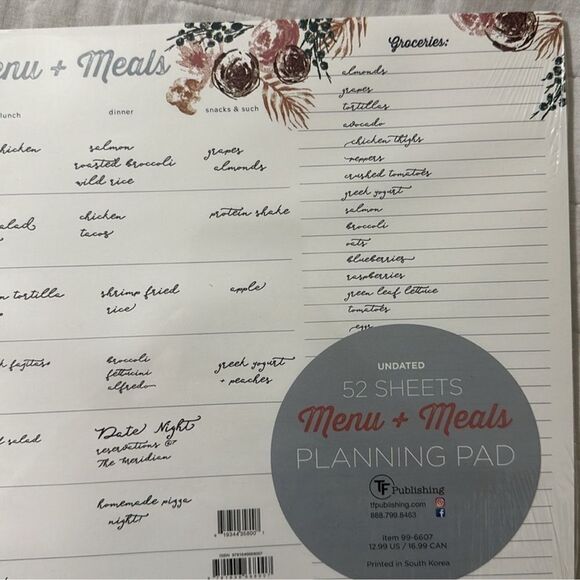 Menu + Meals
lunch
dinner
snacks & such
chicken
salmon
roasted broccoli
wild rice
grapes
almonds
salad
chicken
tacos
protein shake
tortilla
shrimp fried
rice
apple
fajitas
broccoli
fettucini
alfredo
greek yogurt
+ peaches
salad
Date Night
reservations @
The Meridian
homemade pizza
night!
Groceries:
almonds
grapes
tortillas
avocado
chicken thighs
peppers
crushed tomatoes
greek yogurt
salmon
broccoli
oats
blueberries
raspberries
green leaf lettuce
tomatoes
eggs
UNDATED
52 SHEETS
Menu + Meals
PLANNING PAD
TF Publishing
tfpublishing.com
888.799.8463
item 99-6607
12.99 US / 16.99 CAN
Printed in South Korea